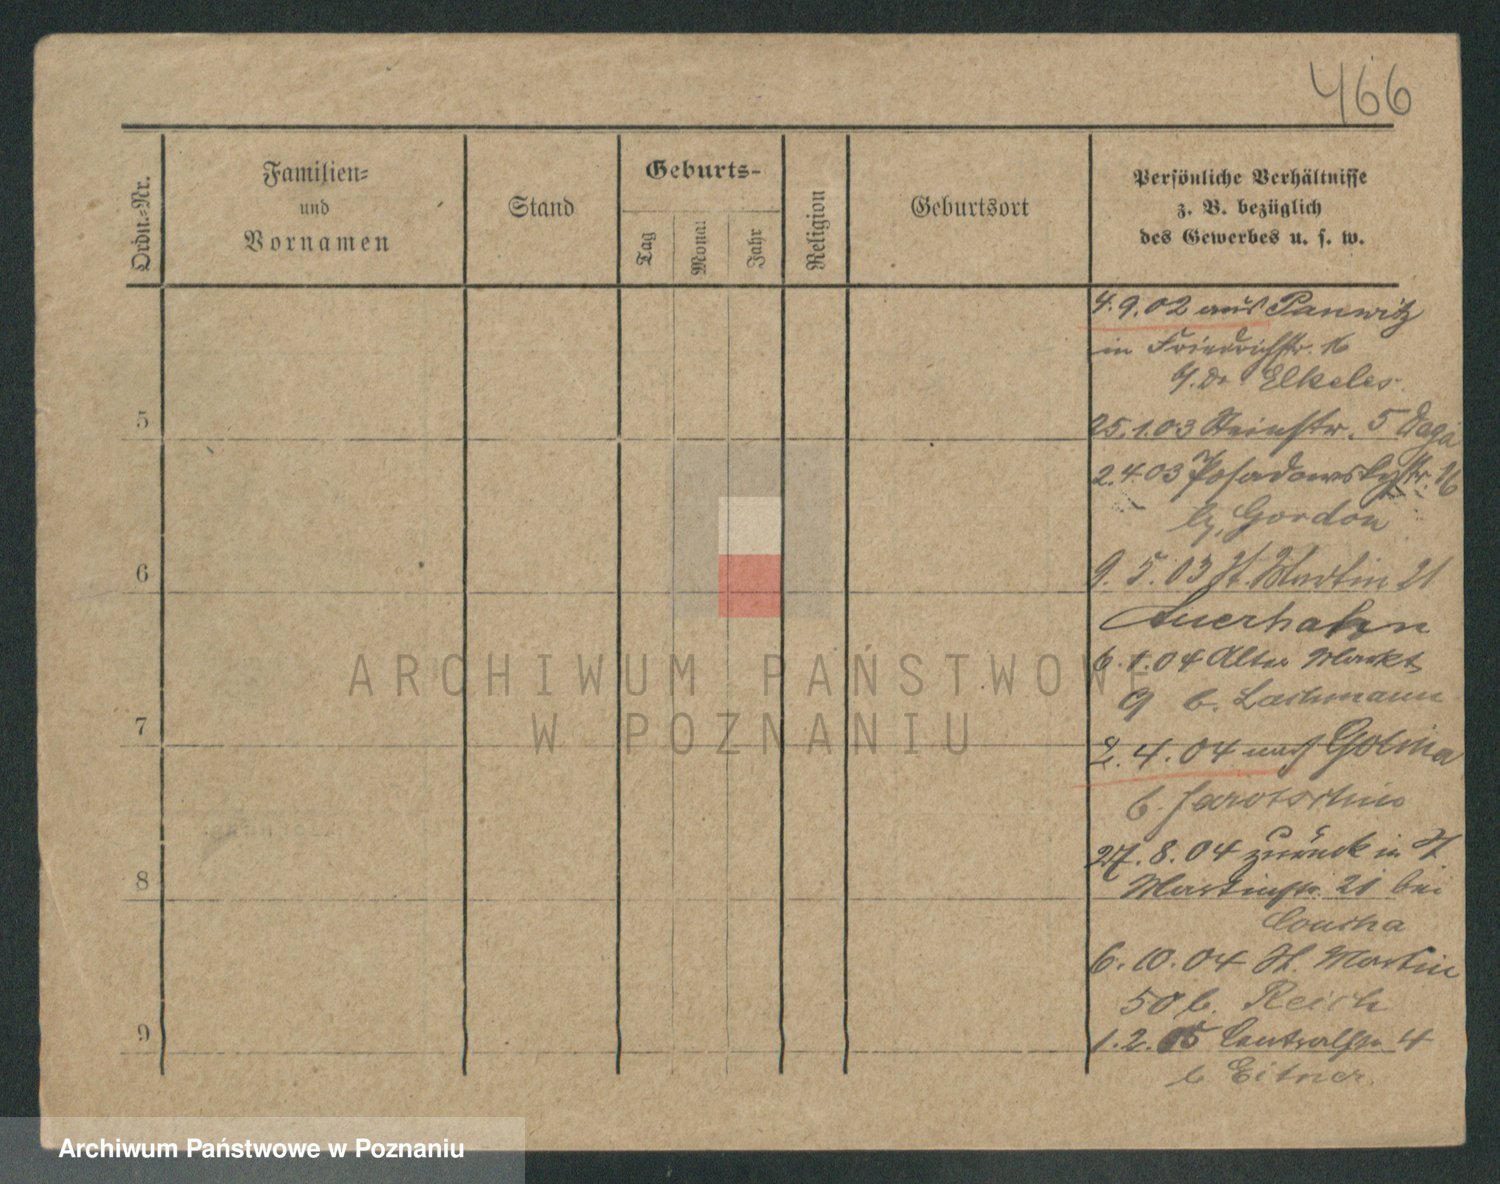 466
Ordn.-Nr.
Familien-
und
Vornamen
Stand
Geburts-
Tag
Monat
Jahr
Religion
Geburtsort
Persönliche Verhältnisse
z. B. bezüglich
des Gewerbes u. s. w.
4.9.02 aus Panwitz
in Friedrichstr. 16
b. Dr Elkeles
5
25.1.03 Steinstr. 5
2.4.03 Posadowskystr. 16
b. Gordon
6
9.5.03 St. Martin 21
Auerhahn
6.1.04 Alter Markt
9 b. Lachmann
7
2.4.04 nach Golina
b. Jarotschin
27.8.04 zurück in St.
8
Martinstr. 21 bei
6.10.04 St. Martin
50 b. Reich
9
1.2.05 Centralstr 4
b Eitner
ARCHIWUM PAŃSTWOWE
W POZNANIU
Archiwum Państwowe w Poznaniu